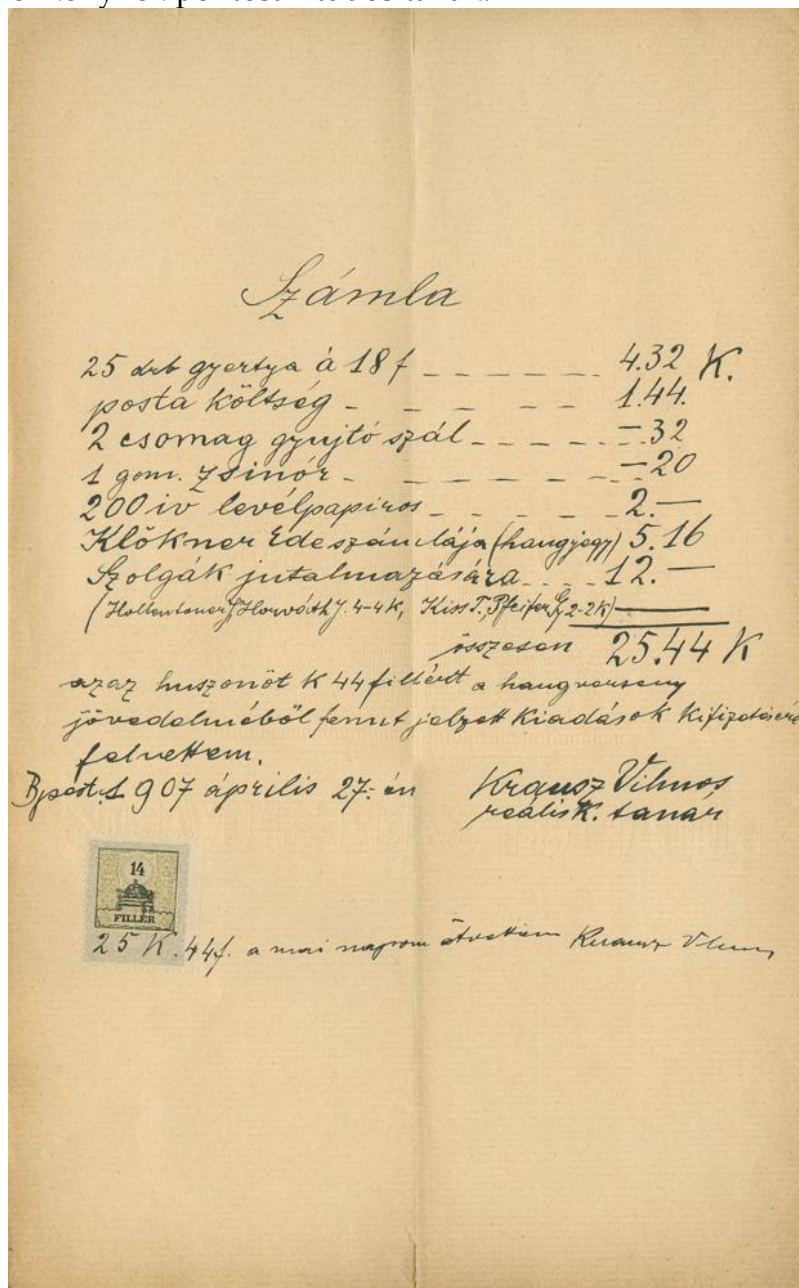 Számla
25 drb gyertya à 18 f _ _ _ _ _ _ 4.32 K.
posta költség - _ _ _ _ _ 1.44.
2 csomag gyujtó szál _ _ _ _ _ -32
1 gom. zsinór - _ _ _ _ _ _ -20
200 iv levélpapiros _ _ _ _ _ 2.—
Klökner Ede számlája (hangjegy) 5.16
Szolgák jutalmazására _ _ _ 12.—
(Horváth J. 4-4 K, Kiss T., Pfeifer Gy. 2-2K)
összesen 25.44 K
azaz huszonöt K 44 fillért a hangverseny
jövedelméből fennt jelzett kiadások kifizetésére
felvettem.
Bpest. 1907 április 27-én Krausz Vilmos
reálisk. tanár
14
FILLÉR
25 K. 44 f. a mai napon átvettem Krausz Vilmos